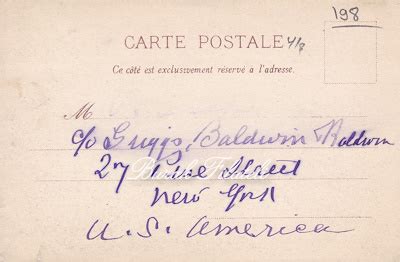 198
CARTE POSTALE 4/8
Ce côté est exclusivement réservé à l'adresse.
M
c/o Griggs, Baldwin & Baldwin
27 Pine Street
New York
U.S. America